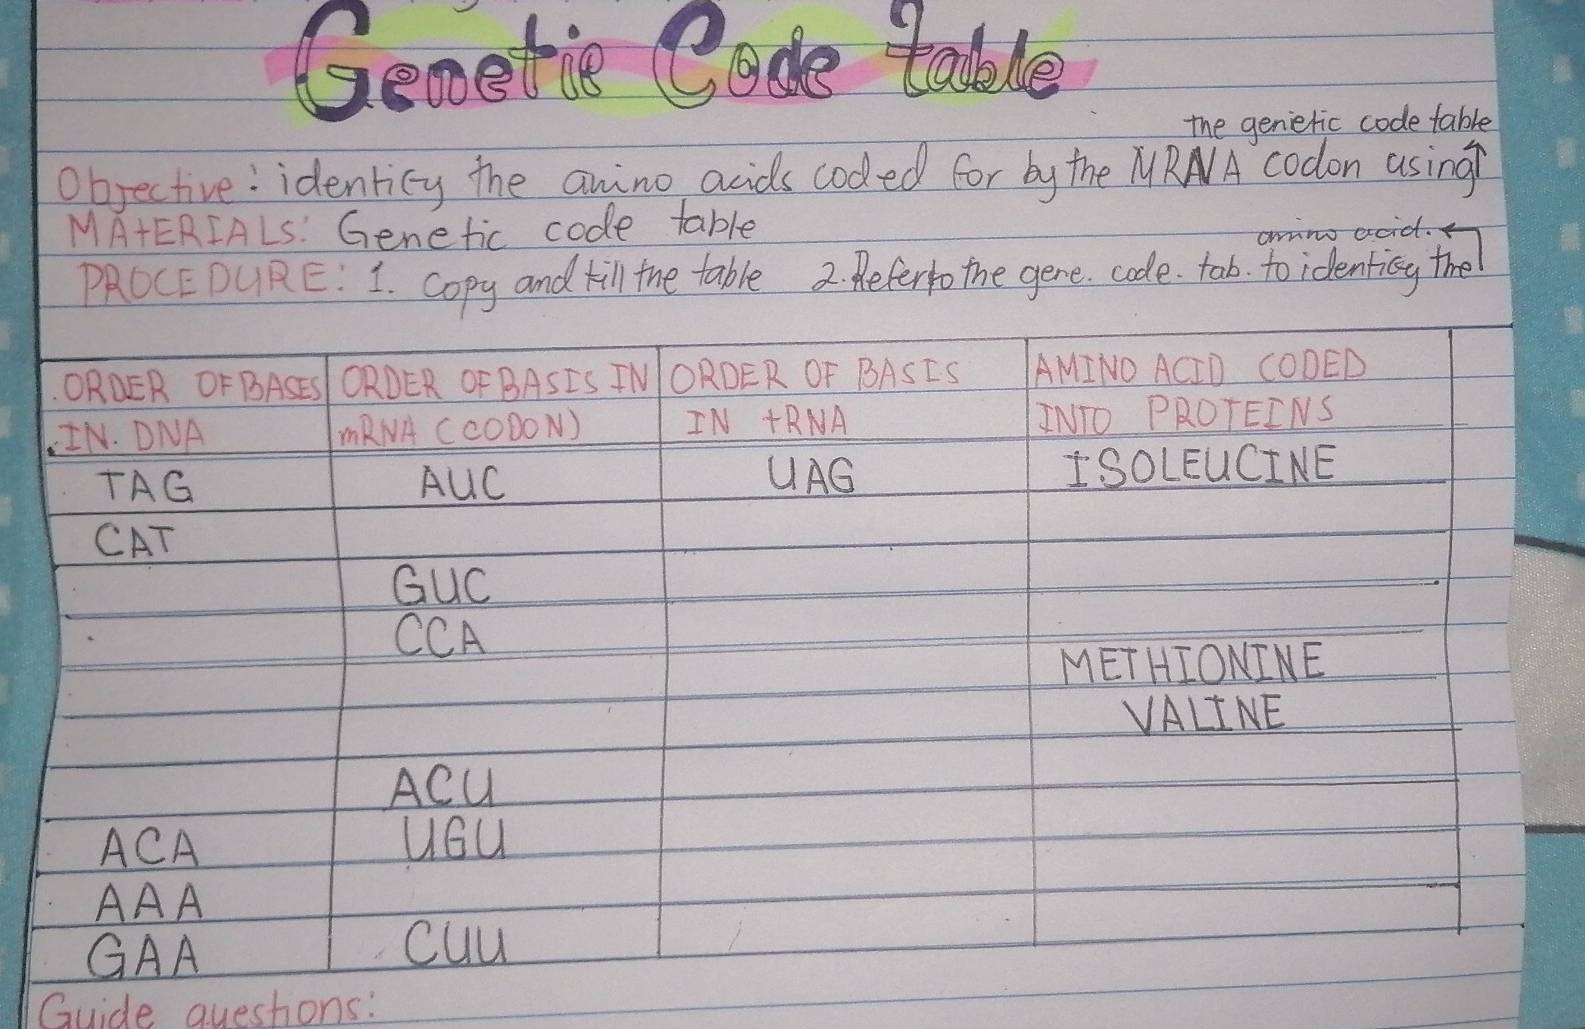 Genetic Code Table
the genietic code table
Objective: identify the amino acids coded for by the MRNA codon using↑
MAtERIALS: Genetic code table
amino acid.←
PROCEDURE: 1. Copy and fill the table 2. Refer to the gene. code. tab. to identify the
ORDER OF BASES ORDER OF BASIS IN ORDER OF BASIS AMINO ACID CODED
IN. DNA mRNA (CODON) IN tRNA INTO PROTEINS
TAG AUC UAG ISOLEUCINE
CAT
GUC
CCA
METHIONINE
VALINE
ACU
ACA UGU
AAA
GAA CUU
Guide questions: